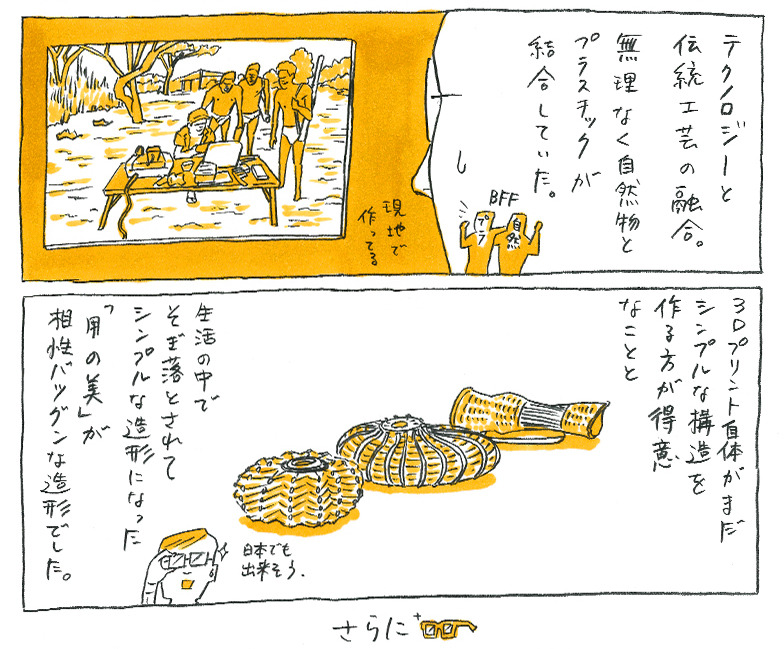 テクノロジーと
伝統工芸の融合。
無理なく自然物と
プラスチックが
結合していた。
BFF
プラ
自然
現地で
作ってる
3Dプリント自体がまだ
シンプルな構造を
作る方が得意
なことと
生活の中で
そぎ落とされて
シンプルな造形になった
「用の美」が
相性バツグンな造形でした。
日本でも
出来そう.
さらに